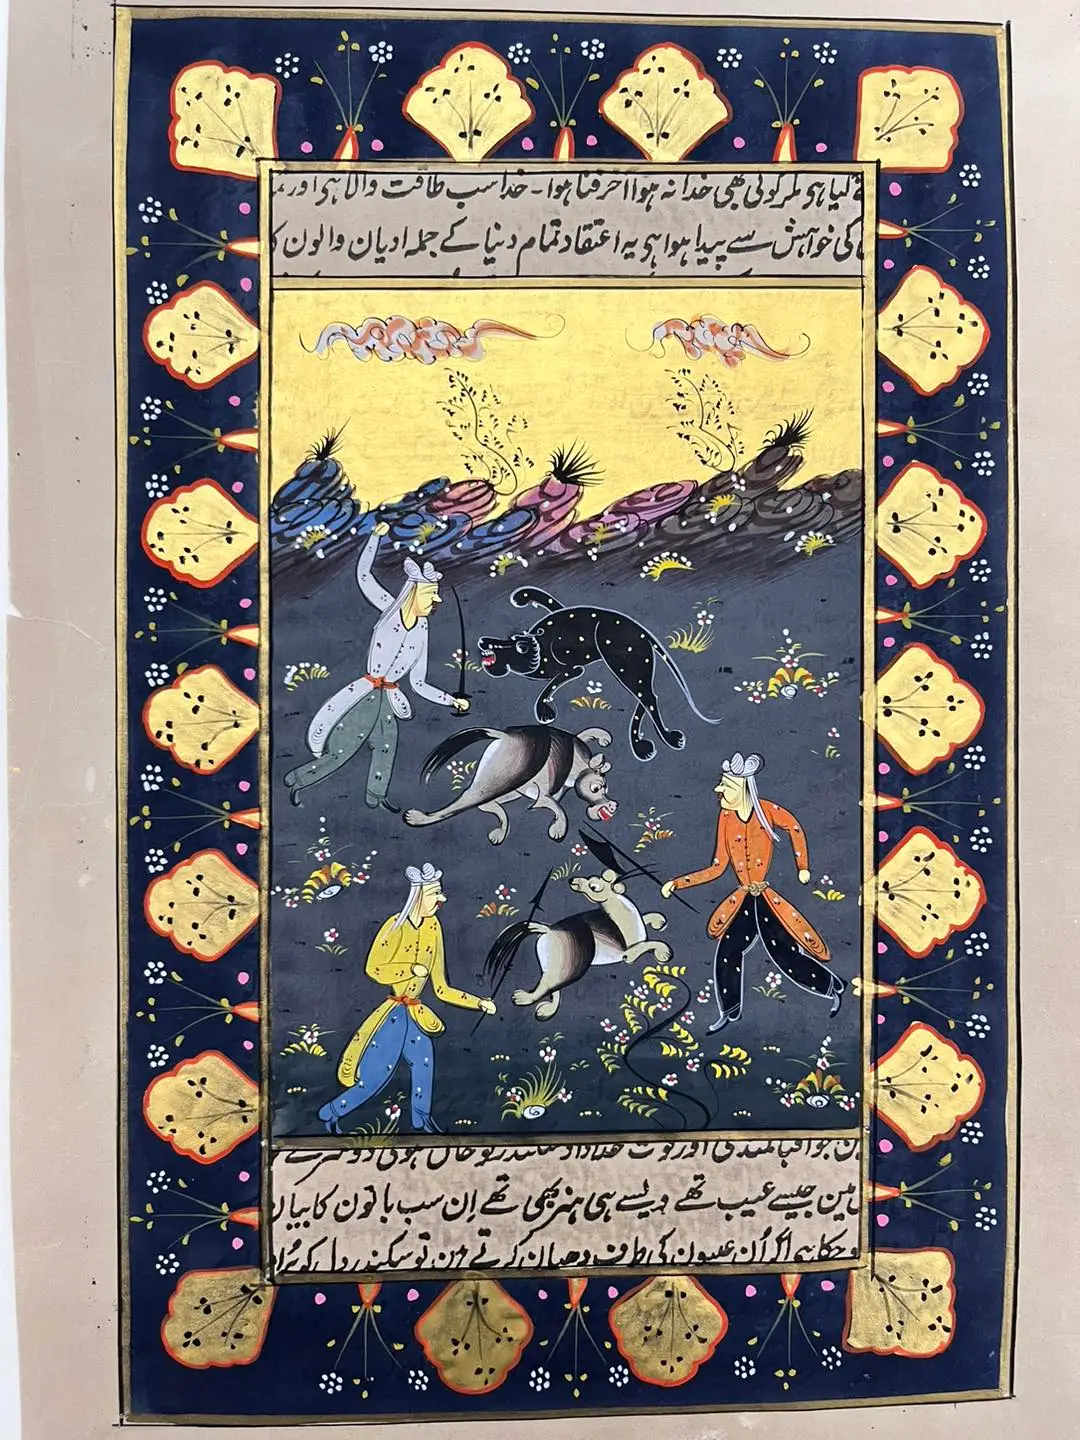 لیا ہو مگر کوئی بھی خدا نہ ہوا آخر فنا ہوا - خدا سب طاقت والا ہی اور
کی خواہش سے پیدا ہوا ہی یہ اعتقاد تمام دنیا کے جملہ ادیان والون
مین جیسے عیب تھے ویسے ہی ہنر بھی تھے اِن سب باتون کا بیان
ہو چکا ہی اگر اُن عیبون کی طرف دھیان کرتے ہین تو سکندر دل کو بُرا